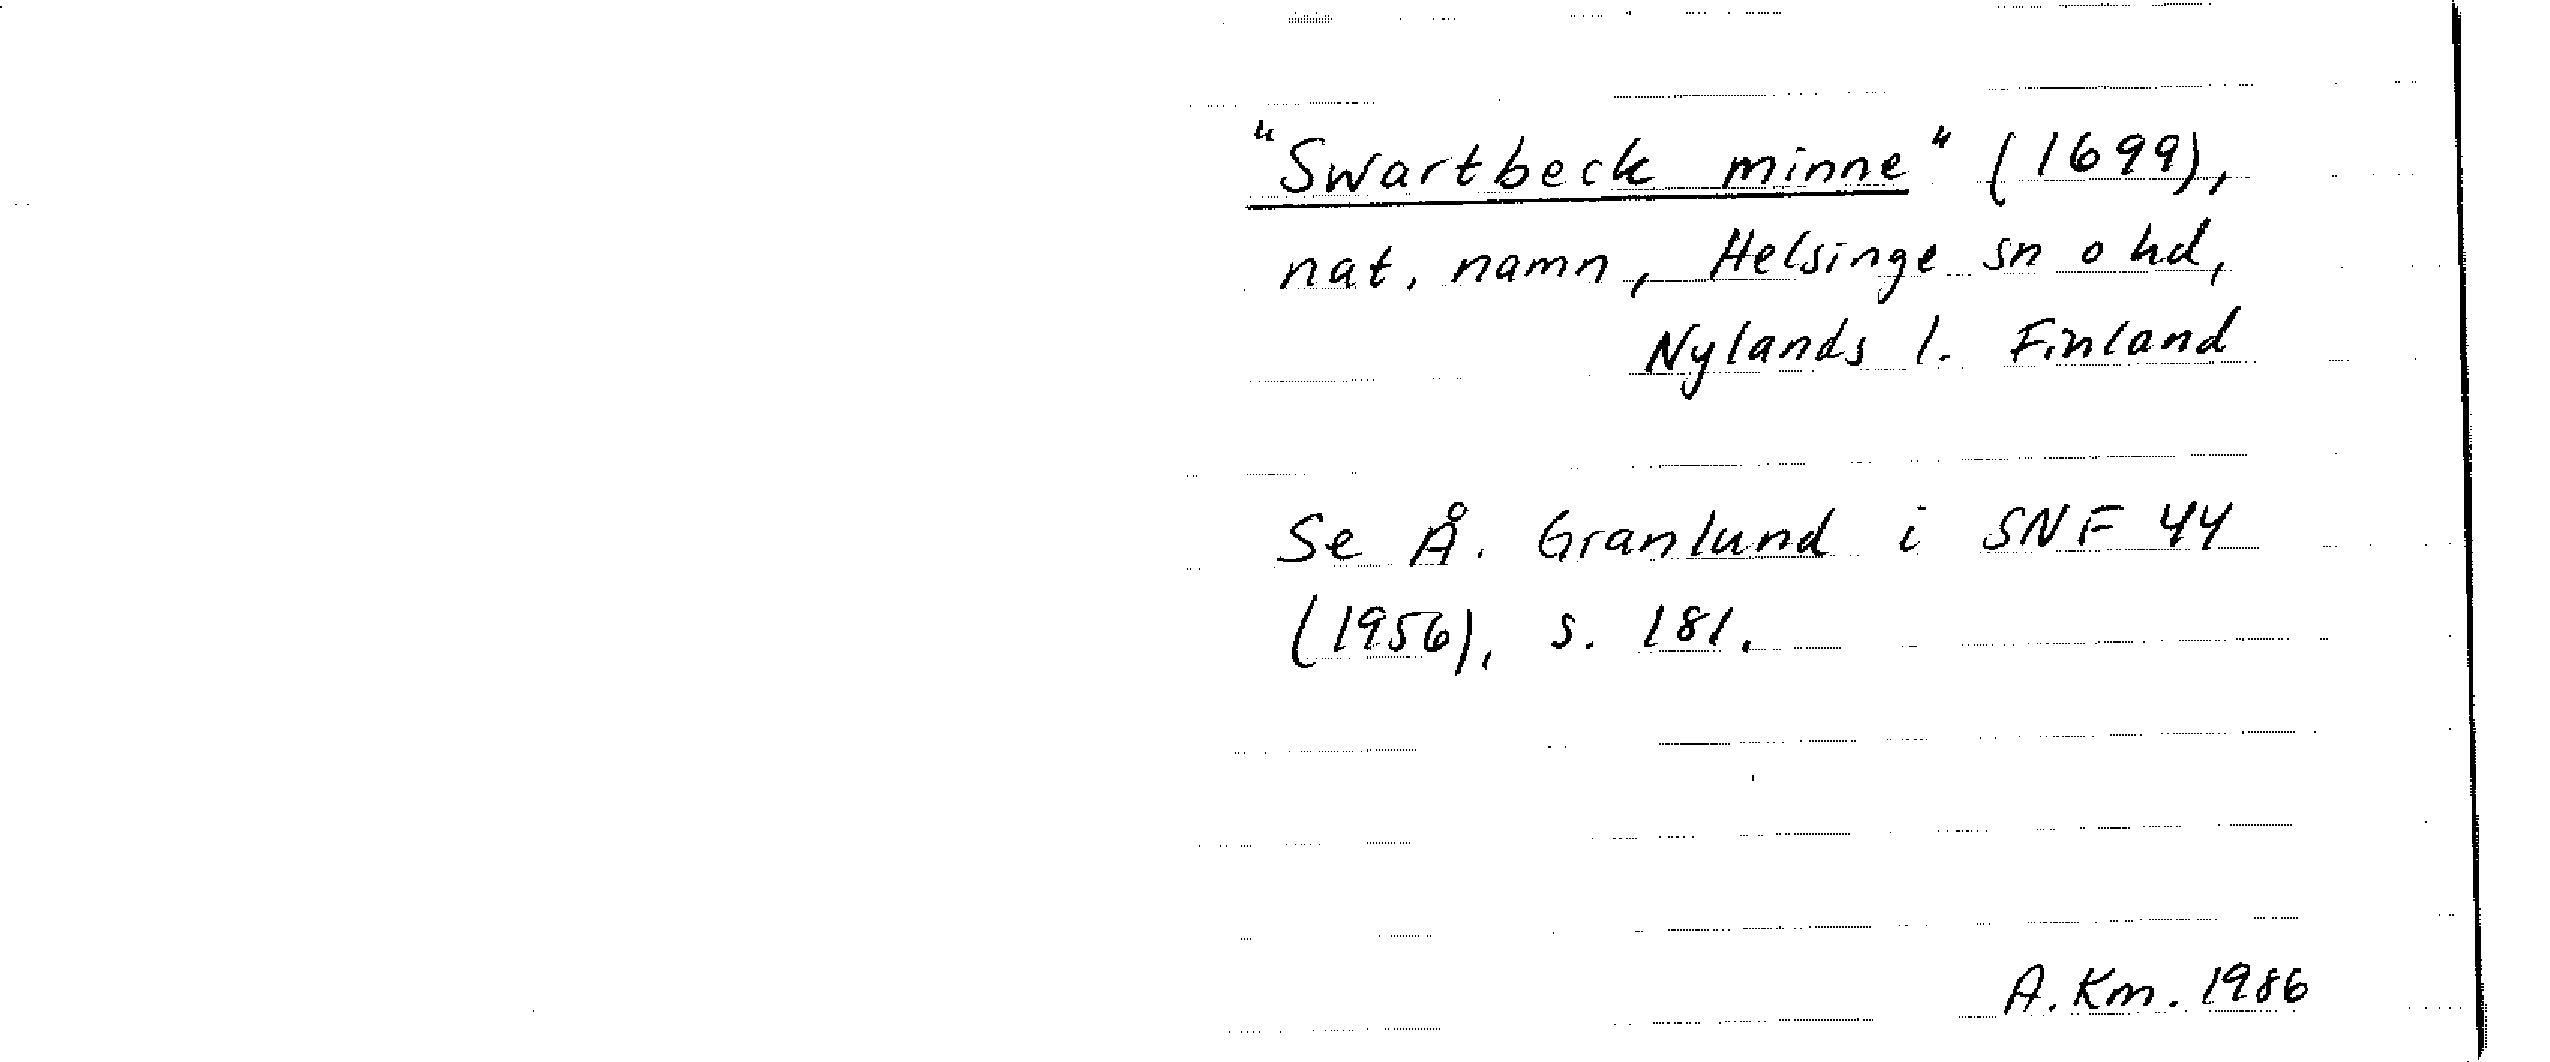 "Swartbeck minne" (1699),
nat. namn, Helsinge sn o hd,
Nylands l. Finland
Se Å. Granlund i SNF 44
(1956), s. 181.
A. Km. 1986